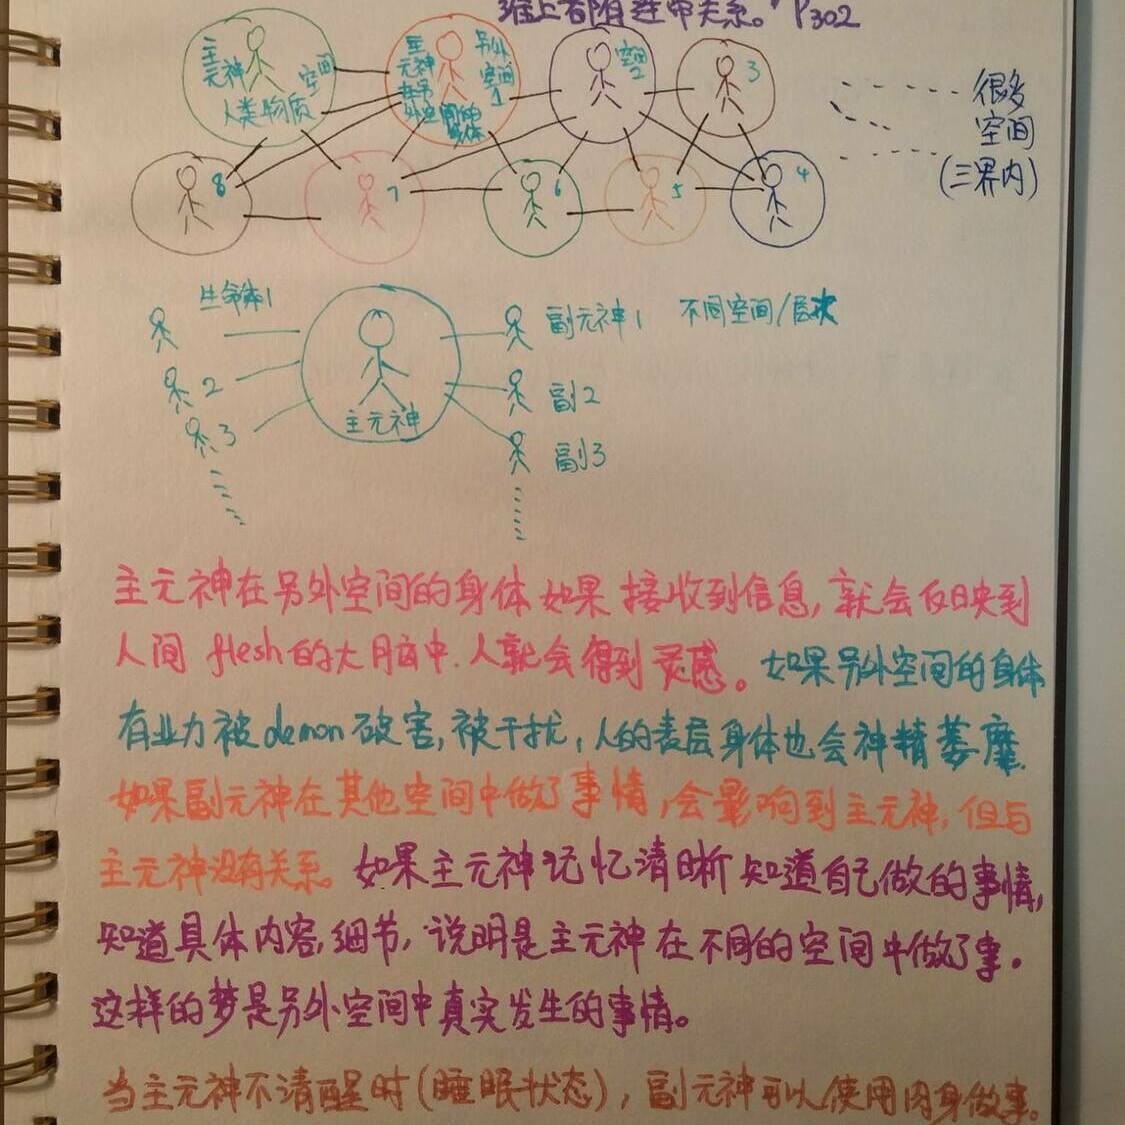 都随连带关系。" P302
主元神 空间
人类物质
主元神在另外空间的身体
另外空间1
空间2
3
很多
空间
(三界内)
8
7
6
5
4
生命体1
副元神1 不同空间/层次
2
副2
主元神
3
副3
主元神在另外空间的身体如果接收到信息,就会反映到
人间flesh的大脑中.人就会得到灵感。如果另外空间的身体
有业力被demon破害,被干扰,人的表层身体也会神精萎靡.
如果副元神在其他空间中做了事情,会影响到主元神,但与
主元神没有关系。如果主元神记忆清晰知道自己做的事情,
知道具体内容,细节,说明是主元神在不同的空间中做了事。
这样的梦是另外空间中真实发生的事情。
当主元神不清醒时(睡眠状态),副元神可以使用肉身做事。